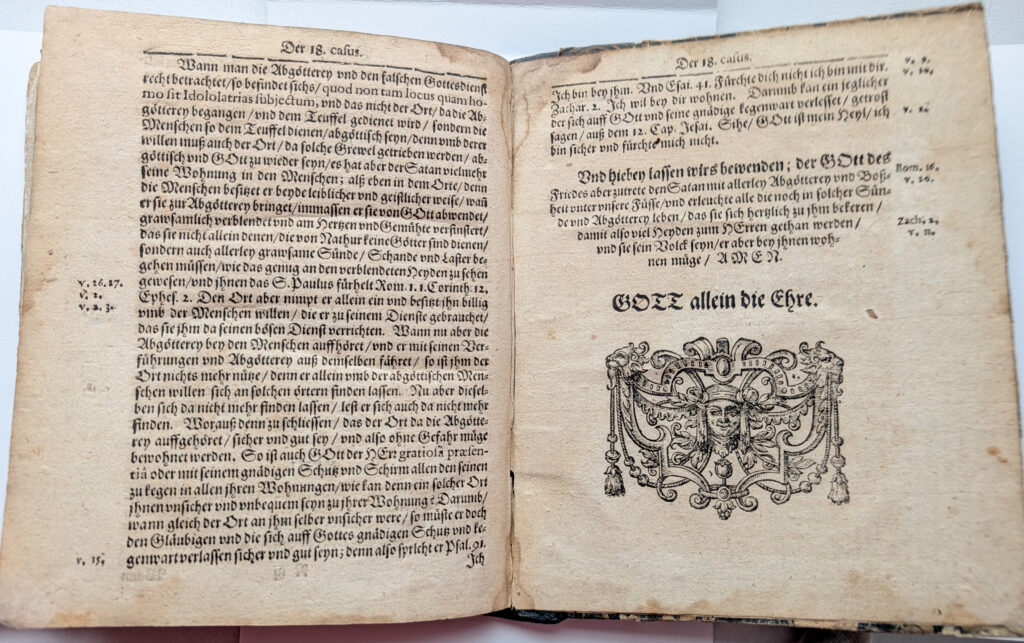 Der 18. casus.
Wann man die Abgötterey vnd den falschen Gottesdienst
recht betrachtet/ so befindet sichs/ quod non tam locus quam ho-
mo sit Idololatrias subjectum, vnd das nicht der Ort/ da die Ab-
götterey begangen/ vnd dem Teuffel gedienet wird/ sondern die
Menschen so dem Teuffel dienen/ abgöttisch seyn/ denn vmb derer
willen muß auch der Ort/ da solche Grewel getrieben werden/ ab-
göttisch vnd GOtt zu wieder seyn/ es hat aber der Satan vielmehr
seine Wohnung in den Menschen; alß eben in dem Orte/ denn
die Menschen besitzet er beyde leiblicher vnd geistlicher weise/ wañ
er sie zur Abgötterey bringet/ immassen er sie von GOtt abwendet/
grawsamlich verblendet vnd am Hertzen vnd Gemühte verfinstert/
das sie nicht allein denen/ die von Nathur keine Götter sind dienen/
sondern auch allerley grawsame Sünde/ Schande vnd Laster be-
gehen müssen/ wie das genug an den verblendeten Heyden zu sehen
v. 26. 27. gewesen/ vnd jhnen das S. Paulus fürhelt Rom. 1. 1. Corinth. 12.
v. 2. Ephes. 2. Den Ort aber nimpt er allein ein vnd besitzt jhn billig
v. 2. 3. vmb der Menschen willen/ die er zu seinem Dienste gebrauchet/
das sie jhm da seinen bösen Dienst verrichten. Wann nu aber die
Abgötterey bey den Menschen auffhöret/ vnd er mit seinen Ver-
führungen vnd Abgötterey auß demselben fähret/ so ist jhm der
Ort nichts mehr nütze/ denn er allein vmb der abgöttischen Men-
schen willen sich an solchen örtern finden lassen. Nu aber diesel-
ben sich da nicht mehr finden lassen/ lest er sich auch da nicht mehr
finden. Worauß denn zu schliessen/ das der Ort da die Abgötte-
rey auffgehöret/ sicher vnd gut sey/ vnd also ohne Gefahr müge
bewohnet werden. So ist auch GOtt der HErr gratiosa præsen-
tiâ oder mit seinem gnädigen Schutz vnd Schirm allen den seinen
zu kegen in allen jhren Wohnungen/ wie kan denn ein solcher Ort
jhnen vnsicher vnd vnbequem seyn zu jhrer Wohnung? Darumb/
wann gleich der Ort an jhm selber vnsicher were/ so müste er doch
den Gläubigen vnd die sich auff Gottes gnädigen Schutz vnd ke-
v. 15. genwart verlassen sicher vnd gut seyn; denn also spricht er Psal. 91.
Ich
Der 18. casus.
Ich bin bey jhm. Vnd Esai. 41. Fürchte dich nicht ich bin mit dir. v. 9.
Zachar. 2. Ich wil bey dir wohnen. Darumb kan ein jeglicher v. 10.
der sich auff GOtt vnd seine gnädige kegenwart verlesset/ getrost
sagen/ auß dem 12. Cap. Jesai. Sihe/ GOtt ist mein Heyl/ ich v. 2.
bin sicher vnd fürchte mich nicht.
Vnd hiebey lassen wirs bewenden; der GOtt des
Friedes aber zutrete den Satan mit allerley Abgötterey vnd Boß- Rom. 16.
heit unter vnsere Füsse/ vnd erleuchte alle die noch in solcher Sün- v. 20.
de vnd Abgötterey leben/ das sie sich hertzlich zu jhm bekeren/
damit also viel Heyden zum HErren gethan werden/ Zach. 2.
vnd sie sein Volck seyn/ er aber bey jhnen woh- v. 11.
nen müge/ AMEN.
GOTT allein die Ehre.